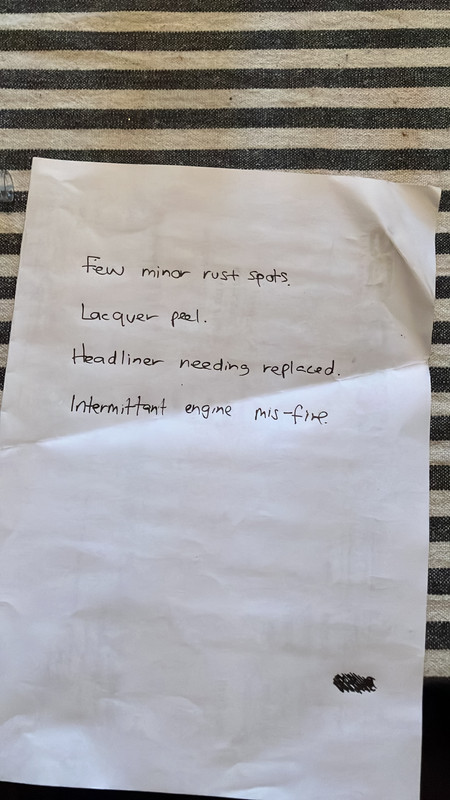 Few minor rust spots.
Lacquer peel.
Headliner needing replaced.
Intermittant engine mis-fire.